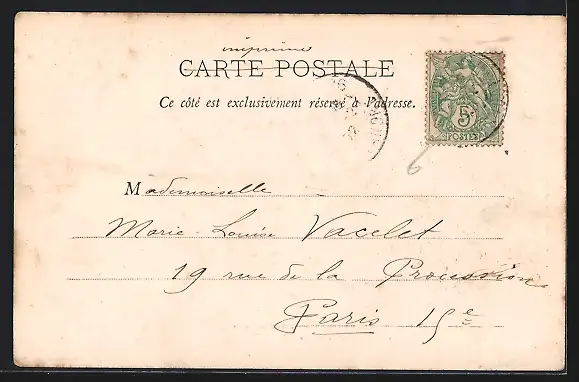 imprimé
CARTE POSTALE
Ce côté est exclusivement réservé à l'adresse.
5c
POSTES
6
Mademoiselle
Marie-Louise Vacelet
19 rue de la Procession
Paris 15e